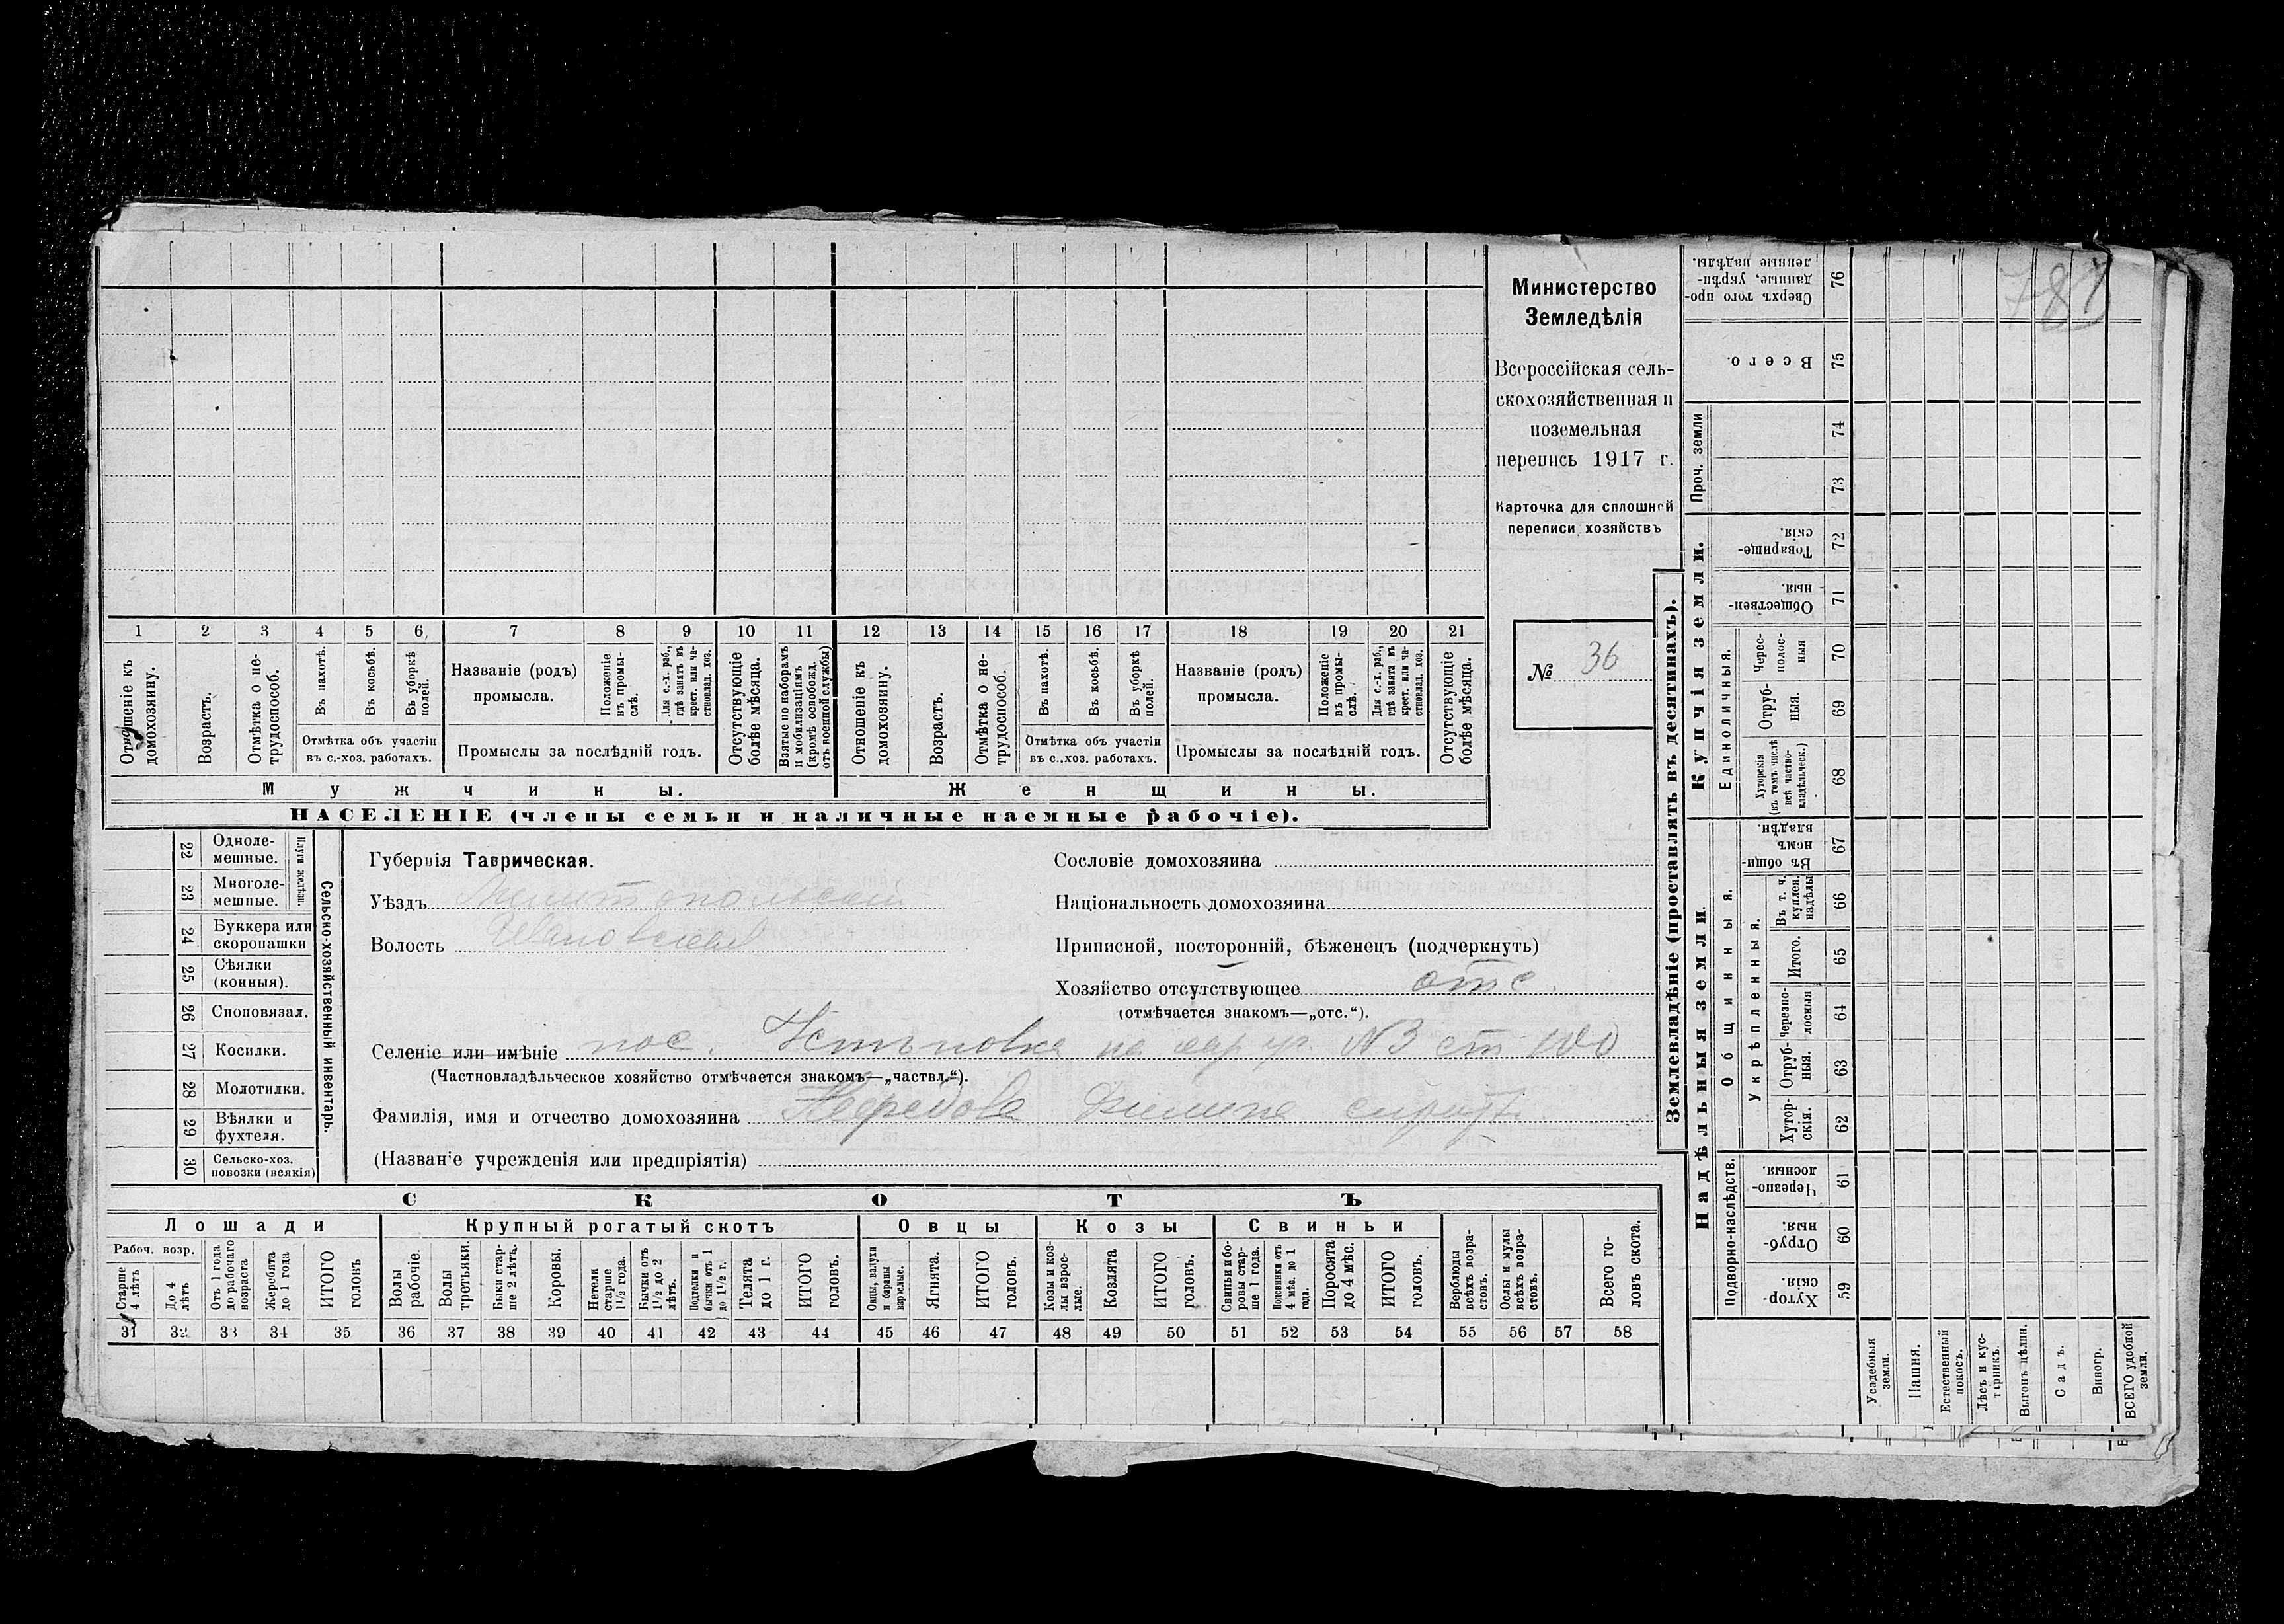 Министерство
Земледѣлія
Всероссійская сель-
скохозяйственная и
поземельная
перепись 1917 г.
Карточка для сплошной
переписи хозяйствъ
№ 36
1 2 3 4 5 6 7 8 9 10 11 12 13 14 15 16 17 18 19 20 21
Отношеніе къ домохозяину.
Возрастъ.
Отмѣтка о не-трудоспособ.
Въ пахотѣ.
Въ косьбѣ.
Въ уборкѣ полей.
Отмѣтка объ участіи
въ с.-хоз. работахъ.
Названіе (родъ)
промысла.
Положеніе въ промы-слѣ.
Для с.-х. раб., гдѣ занятъ въ крест. или ча-стновлад. хоз.
Промыслы за послѣдній годъ.
Отсутствующіе болѣе мѣсяца.
Взятые по наборамъ и мобилизаціямъ (кромѣ освобожд. отъ военной службы)
Отношеніе къ домохозяину.
Возрастъ.
Отмѣтка о не-трудоспособ.
Въ пахотѣ.
Въ косьбѣ.
Въ уборкѣ полей.
Отмѣтка объ участіи
въ с.-хоз. работахъ.
Названіе (родъ)
промысла.
Положеніе въ промы-слѣ.
Для с.-х. раб., гдѣ занятъ въ крест. или ча-стновлад. хоз.
Промыслы за послѣдній годъ.
Отсутствующіе болѣе мѣсяца.
Мужчины. Женщины.
НАСЕЛЕНІЕ (члены семьи и наличные наемные рабочіе).
22 Одноле-мешные.
23 Многоле-мешные.
Плуги желѣзн.
24 Буккера или скоропашки
25 Сѣялки (конныя).
26 Сноповязал.
27 Косилки.
28 Молотилки.
29 Вѣялки и фухтеля.
30 Сельско-хоз. повозки (всякія)
Сельско-хозяйственный инвентарь.
Губернія Таврическая.
Уѣздъ Мелитопольскій
Волость Ивановская
Сословіе домохозяина
Національность домохозяина
Приписной, посторонній, бѣженецъ (подчеркнуть)
Хозяйство отсутствующее отс.
(отмѣчается знакомъ—„отс.“).
Селеніе или имѣніе пос. на № 3 ст
(Частновладѣльческое хозяйство отмѣчается знакомъ—„частвл.“).
Фамилія, имя и отчество домохозяина
(Названіе учрежденія или предпріятія)
СКОТЪ
Лошади Крупный рогатый скотъ Овцы Козы Свиньи
Рабоч. возр.
Старше 4 лѣтъ
До 4 лѣтъ
Отъ 1 года до рабочаго возраста
Жеребята до 1 года
ИТОГО головъ
Волы рабочіе.
Волы третьяки.
Быки стар-ше 2 лѣтъ.
Коровы.
Нетели старше 1½ года.
Бычки отъ 1½ до 2 лѣтъ.
Подтелки и бычки отъ 1 до 1½ г.
Телята до 1 г.
ИТОГО головъ.
Овцы, валухи и бараны взрослые.
Ягнята.
ИТОГО головъ.
Козы и коз-лы взрос-лые.
Козлята
ИТОГО головъ.
Свиньи и бо-ровы стар-ше 1 года.
Подсвинки отъ 4 мѣс. до 1 года.
Поросята до 4 мѣс.
ИТОГО головъ.
Верблюды всѣхъ возра-стовъ.
Ослы и мулы всѣхъ возра-стовъ.
Всего го-ловъ скота.
31 32 33 34 35 36 37 38 39 40 41 42 43 44 45 46 47 48 49 50 51 52 53 54 55 56 57 58
Землевладѣніе (проставлять въ десятинахъ).
Надѣльныя земли.
Подворно-наслѣдств.
Хутор-скія. 59
Отруб-ныя. 60
Черезпо-лосныя 61
Общинныя.
Укрѣпленныя.
Хутор-скія. 62
Отруб-ныя. 63
Черезпо-лосныя 64
Итого. 65
Въ т. ч. куплен. надѣлы 66
Въ общин-номъ владѣн. 67
Купчія земли.
Единоличныя.
Хуторскія (въ томъ числѣ всѣ частно-владѣльческ.) 68
Отруб-ныя. 69
Черес-полос-ныя 70
Обществен-ныя. 71
Товарище-скія 72
Проч. земли
73
74
Всего. 75
Сверхъ того про-данные, укрѣп-ленные надѣлы. 76
Усадебныя земли.
Пашня.
Естественный покосъ.
Лѣсъ и кус-тарникъ
Выгонъ цѣлин.
Садъ.
Виногр.
ВСЕГО удобной земли.